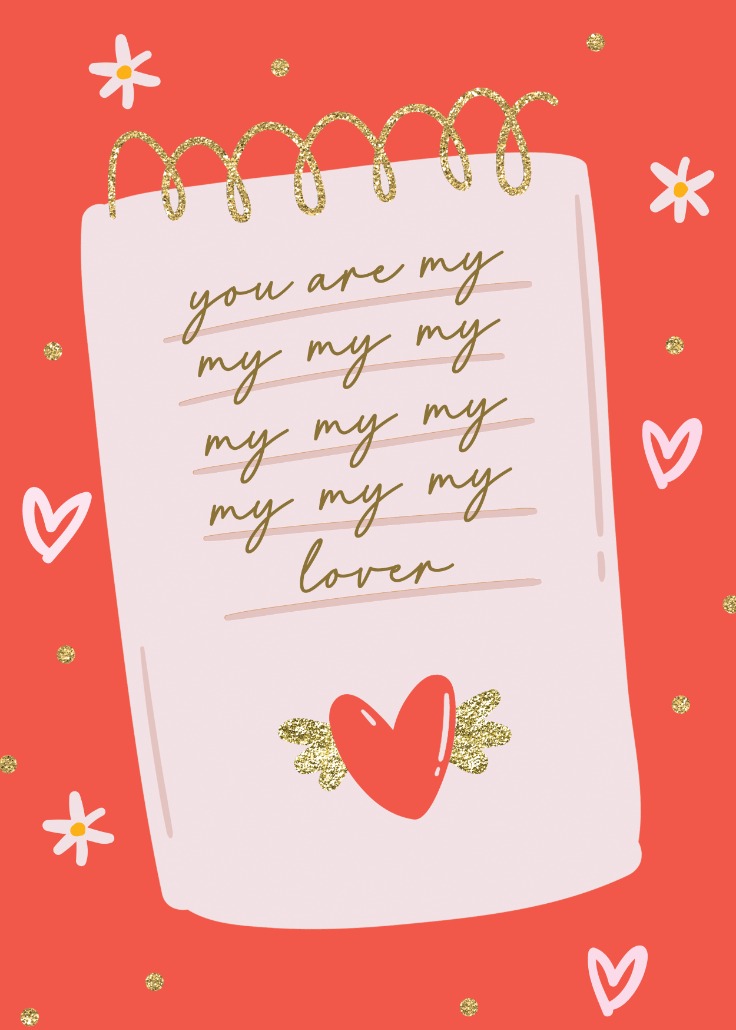 you are my
my my my
my my my
my my my
lover